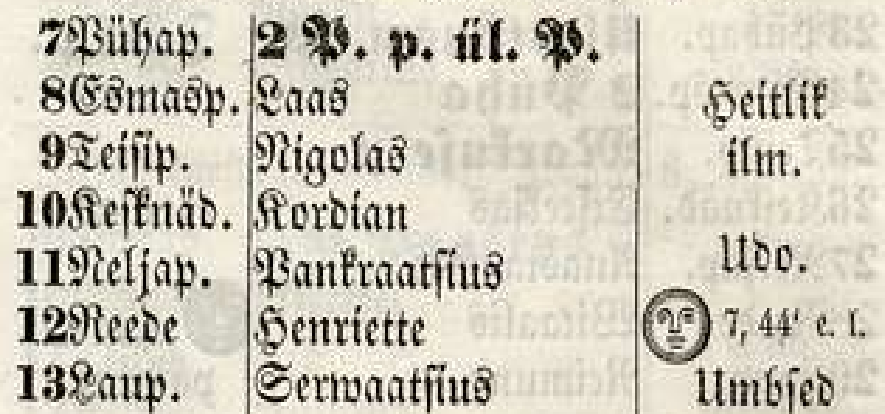 7 Pühap. 2 P. p. ül. P.
8 Esmasp. Laas Heitlik
9 Teisip. Nigolas ilm.
10 Keskнäd. Kordian
11 Neljap. Pankraatsius Udo.
12 Reede Henriette 7, 44' e. l.
13 Laup. Serwaatsius Umbsed